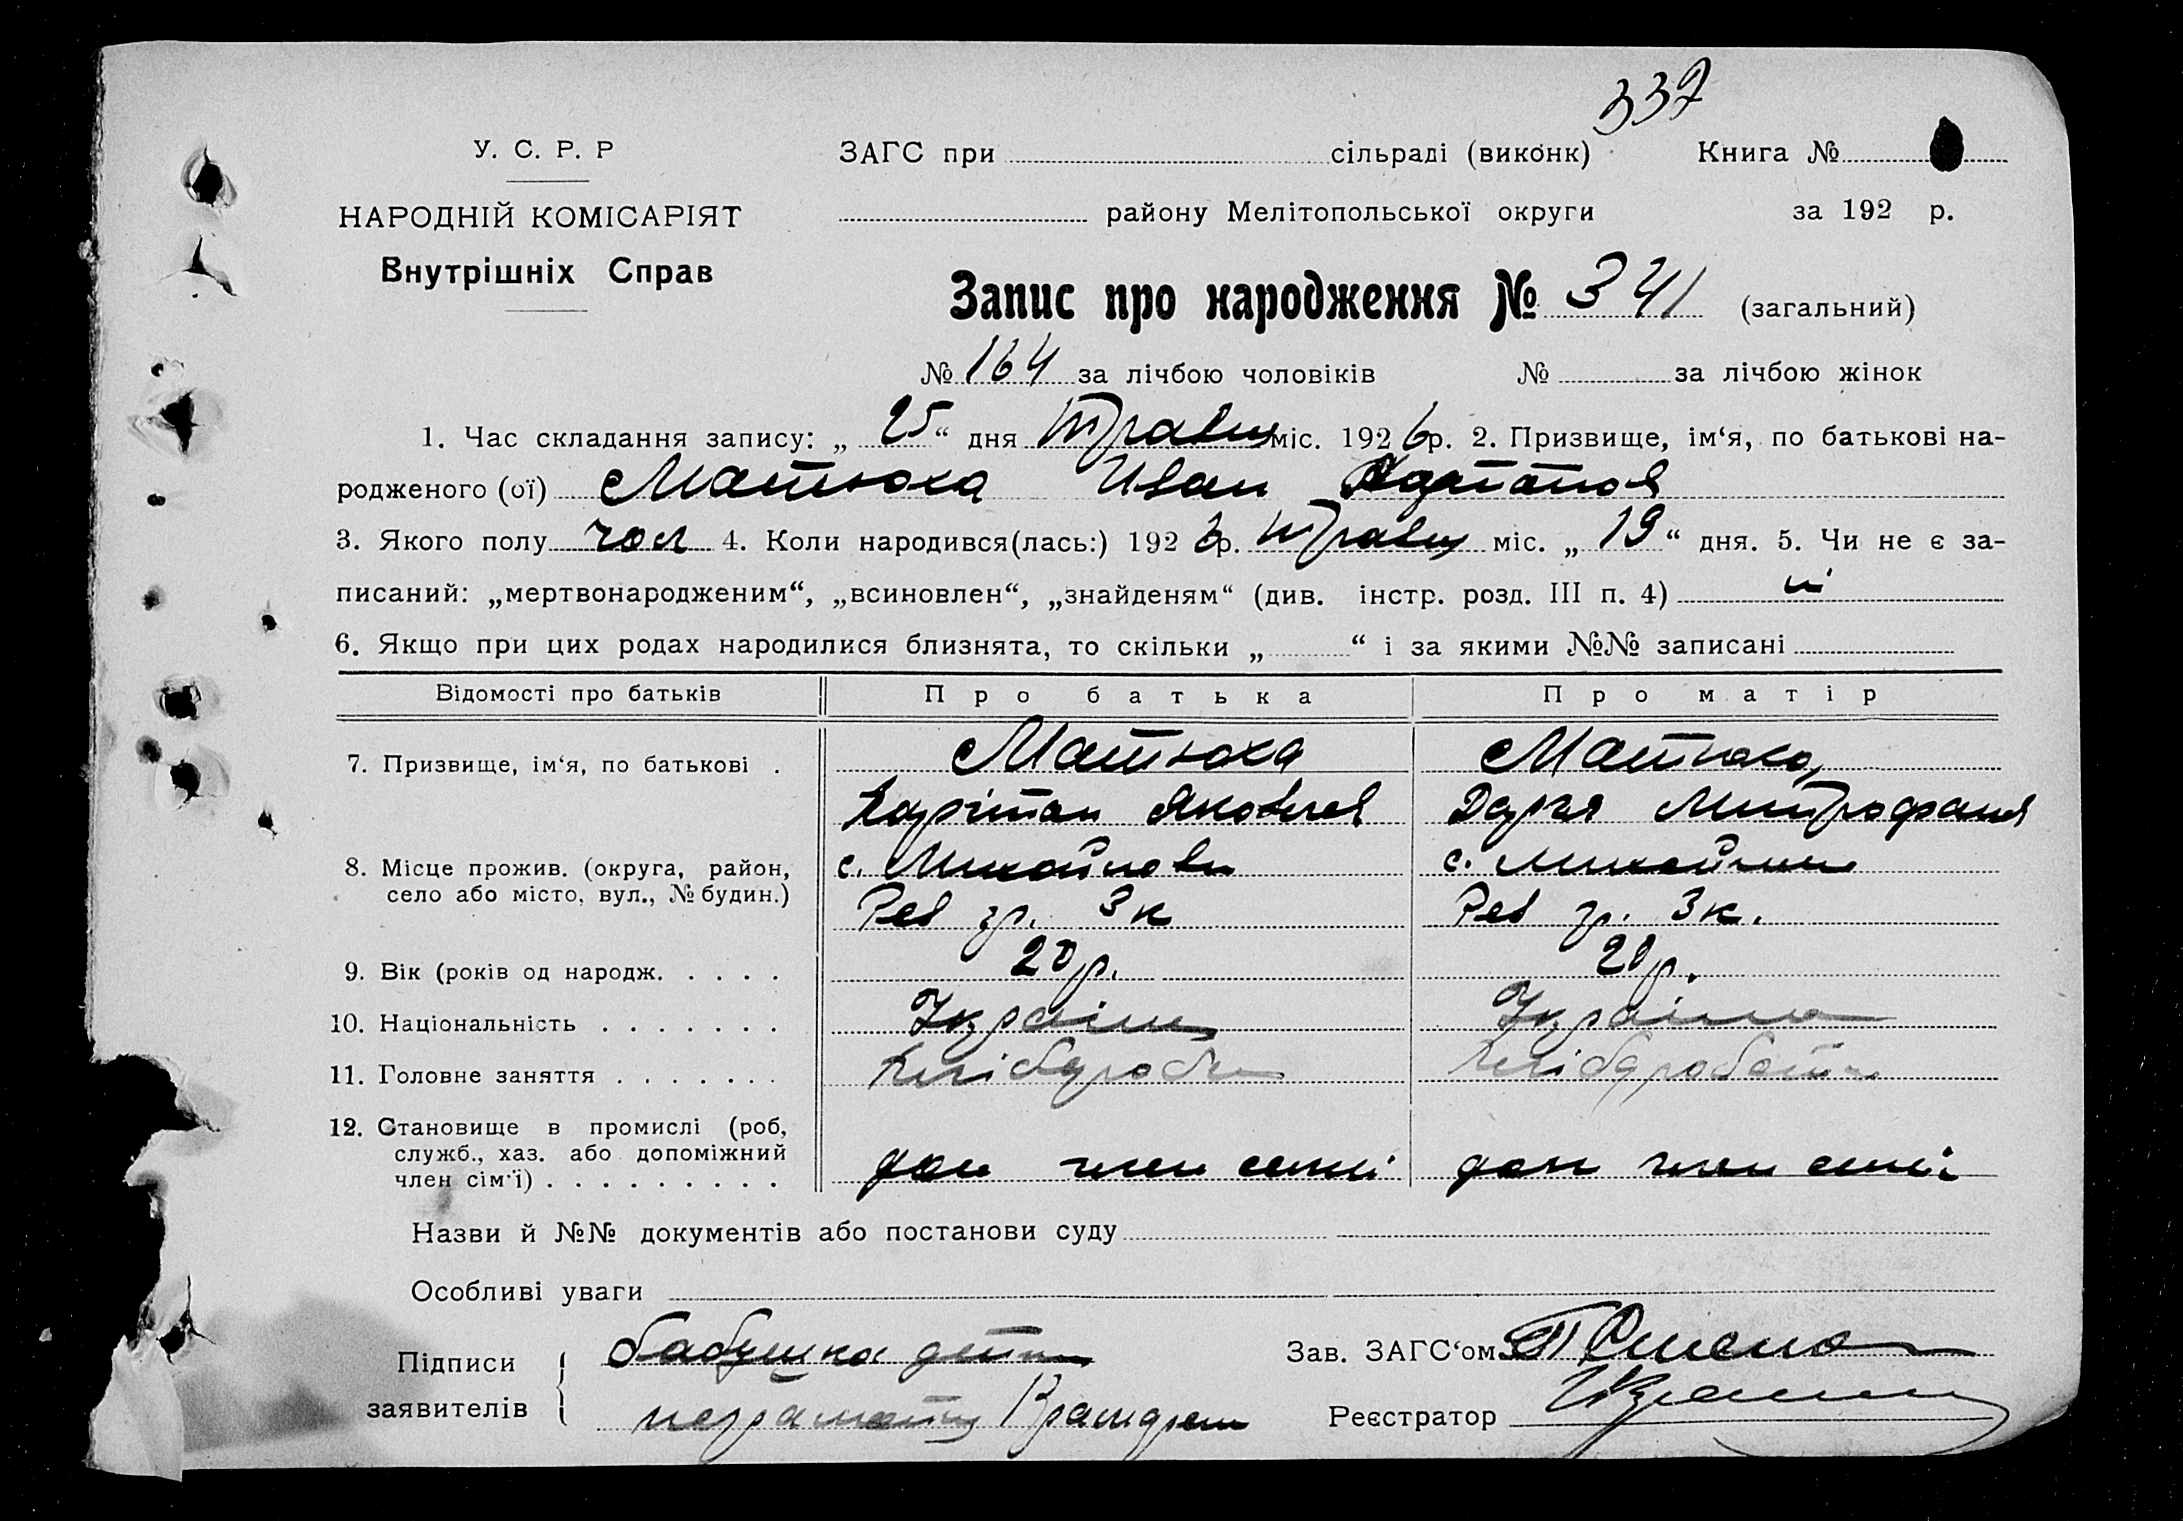 337
У. С. Р. Р
ЗАГС при сільраді (виконк) Книга №
НАРОДНІЙ КОМІСАРІЯТ
району Мелітопольської округи за 192 р.
Внутрішніх Справ
Запис про народження № 341 (загальний)
№ 164 за лічбою чоловіків № за лічбою жінок
1. Час складання запису: „ 25 “ дня Травня міс. 192 6 р. 2. Призвище, ім‘я, по батькові на-
родженого (ої) Матюха Иван
3. Якого полу чол 4. Коли народився(лась:) 192 6 р. Травня міс. „ 19 “ дня. 5. Чи не є за-
писаний: „мертвонародженим“, „всиновлен“, „знайденям“ (див. інстр. розд. III п. 4) ні
6. Якщо при цих родах народилися близнята, то скільки „ “ і за якими №№ записані
Відомості про батьків Про батька Про матір
7. Призвище, ім‘я, по батькові . Матюха Матюха
Яковлев Митрофанов
8. Місце прожив. (округа, район, с. с.
село або місто, вул., № будин.) Рев гр. 3 к Рев гр. 3 к.
9. Вік (років од народж. . . . . 20 р. 20 р.
10. Національність . . . . . . .
11. Головне заняття . . . . . . .
12. Становище в промислі (роб,
служб., хаз. або допоміжний
член сім‘ї) . . . . . . . . . доп член семьі доп член семьі
Назви й №№ документів або постанови суду
Особливі уваги
Підписи бабушка Зав. ЗАГС‘ом
заявителів Реєстратор